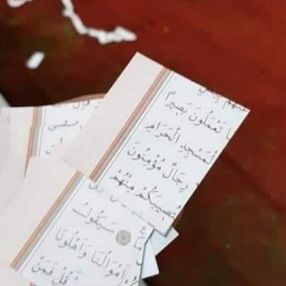 تَعْمَلُونَ بَصِيرًا
لْمَسْجِدِ الْحَرَامِ
رِجَالٌ مُؤْمِنُونَ
تُصِيبَكُمْ مِنْهُمْ
سَيَقُولُ
أَمْوَالُنَا وَأَهْلُونَا
قُلْ فَمَنْ